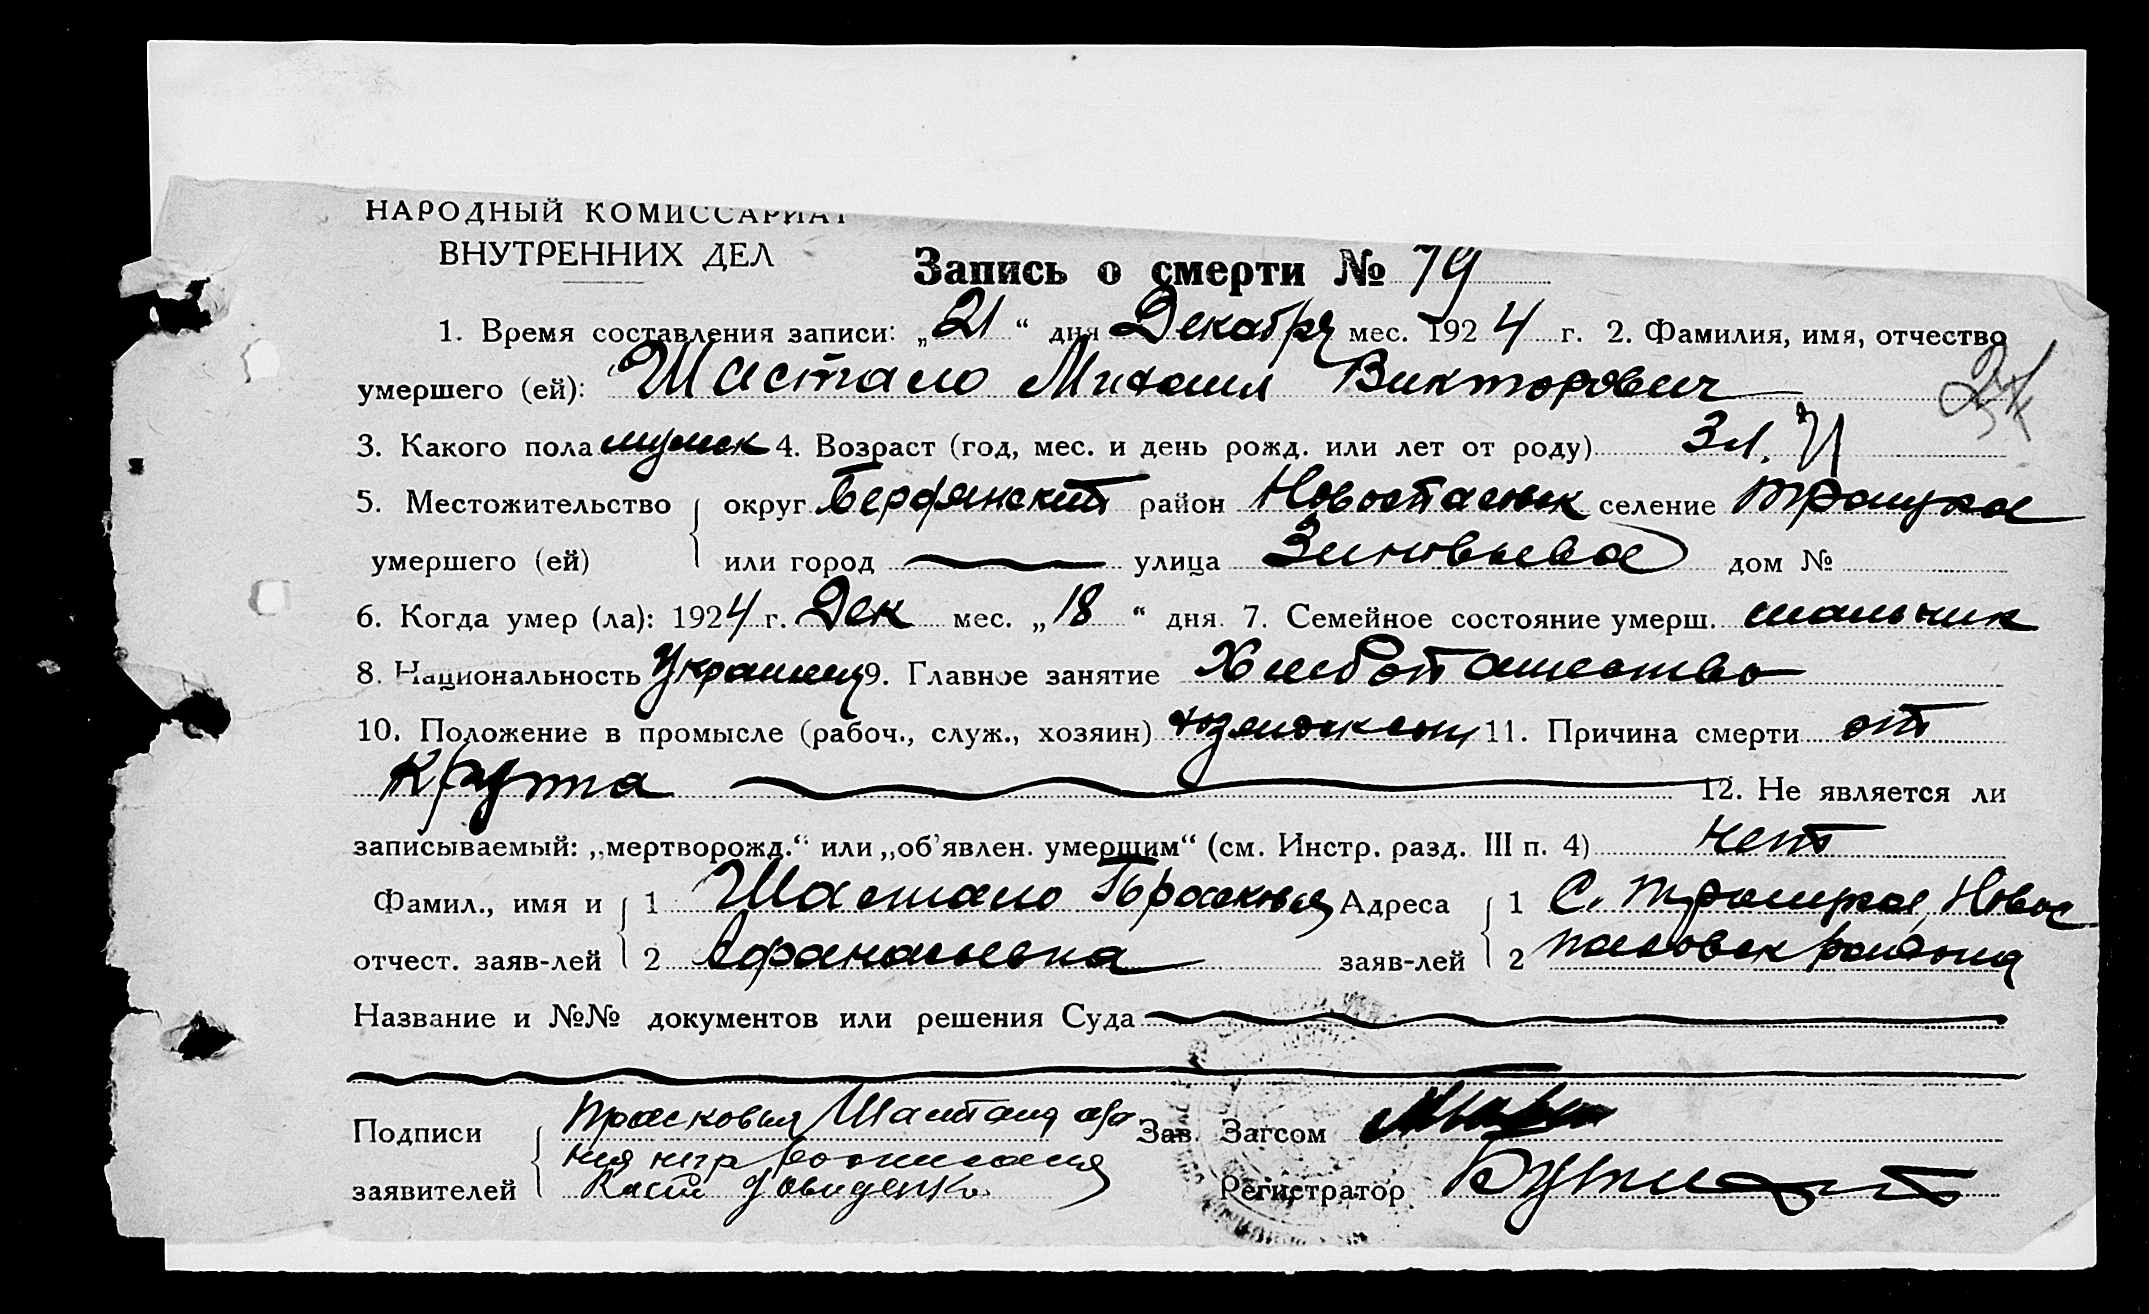 НАРОДНЫЙ КОМИССАРИАТ
ВНУТРЕННИХ ДЕЛ
Запись о смерти № 79
1. Время составления записи: „21“ дня Декабря мес. 1924 г. 2. Фамилия, имя, отчество
умершего (ей): Шастало Михаил Викторович
3. Какого пола мужск 4. Возраст (год, мес. и день рожд. или лет от роду) 3 л.
5. Местожительство округ Бердянский район Новоспасовск селение Троицкое
умершего (ей) или город улица Зиновьева дом №
6. Когда умер (ла): 1924 г. Дек мес. „18“ дня. 7. Семейное состояние умерш. мальчик
8. Национальность Украинец 9. Главное занятие Хлебопашество
10. Положение в промысле (рабоч., служ., хозяин) 11. Причина смерти от
Крупа
12. Не является ли
записываемый: „мертворожд.“ или „об'явлен. умершим“ (см. Инстр. разд. III п. 4) нет
Фамил., имя и 1 Шастало Прасковья Адреса 1 С. Троицкое, Новос
отчест. заяв-лей 2 Афанасьевна заяв-лей 2 пасовск района
Название и №№ документов или решения Суда
Подписи Прасковья Зав. Загсом
заявителей Регистратор